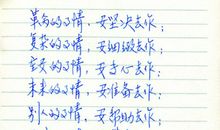 革命的事情，要坚决去作；
复杂的事情，要细致去作；
的事情，要专心去作；
未来的事情，要准备去作；
别人的事情，要帮助去作；